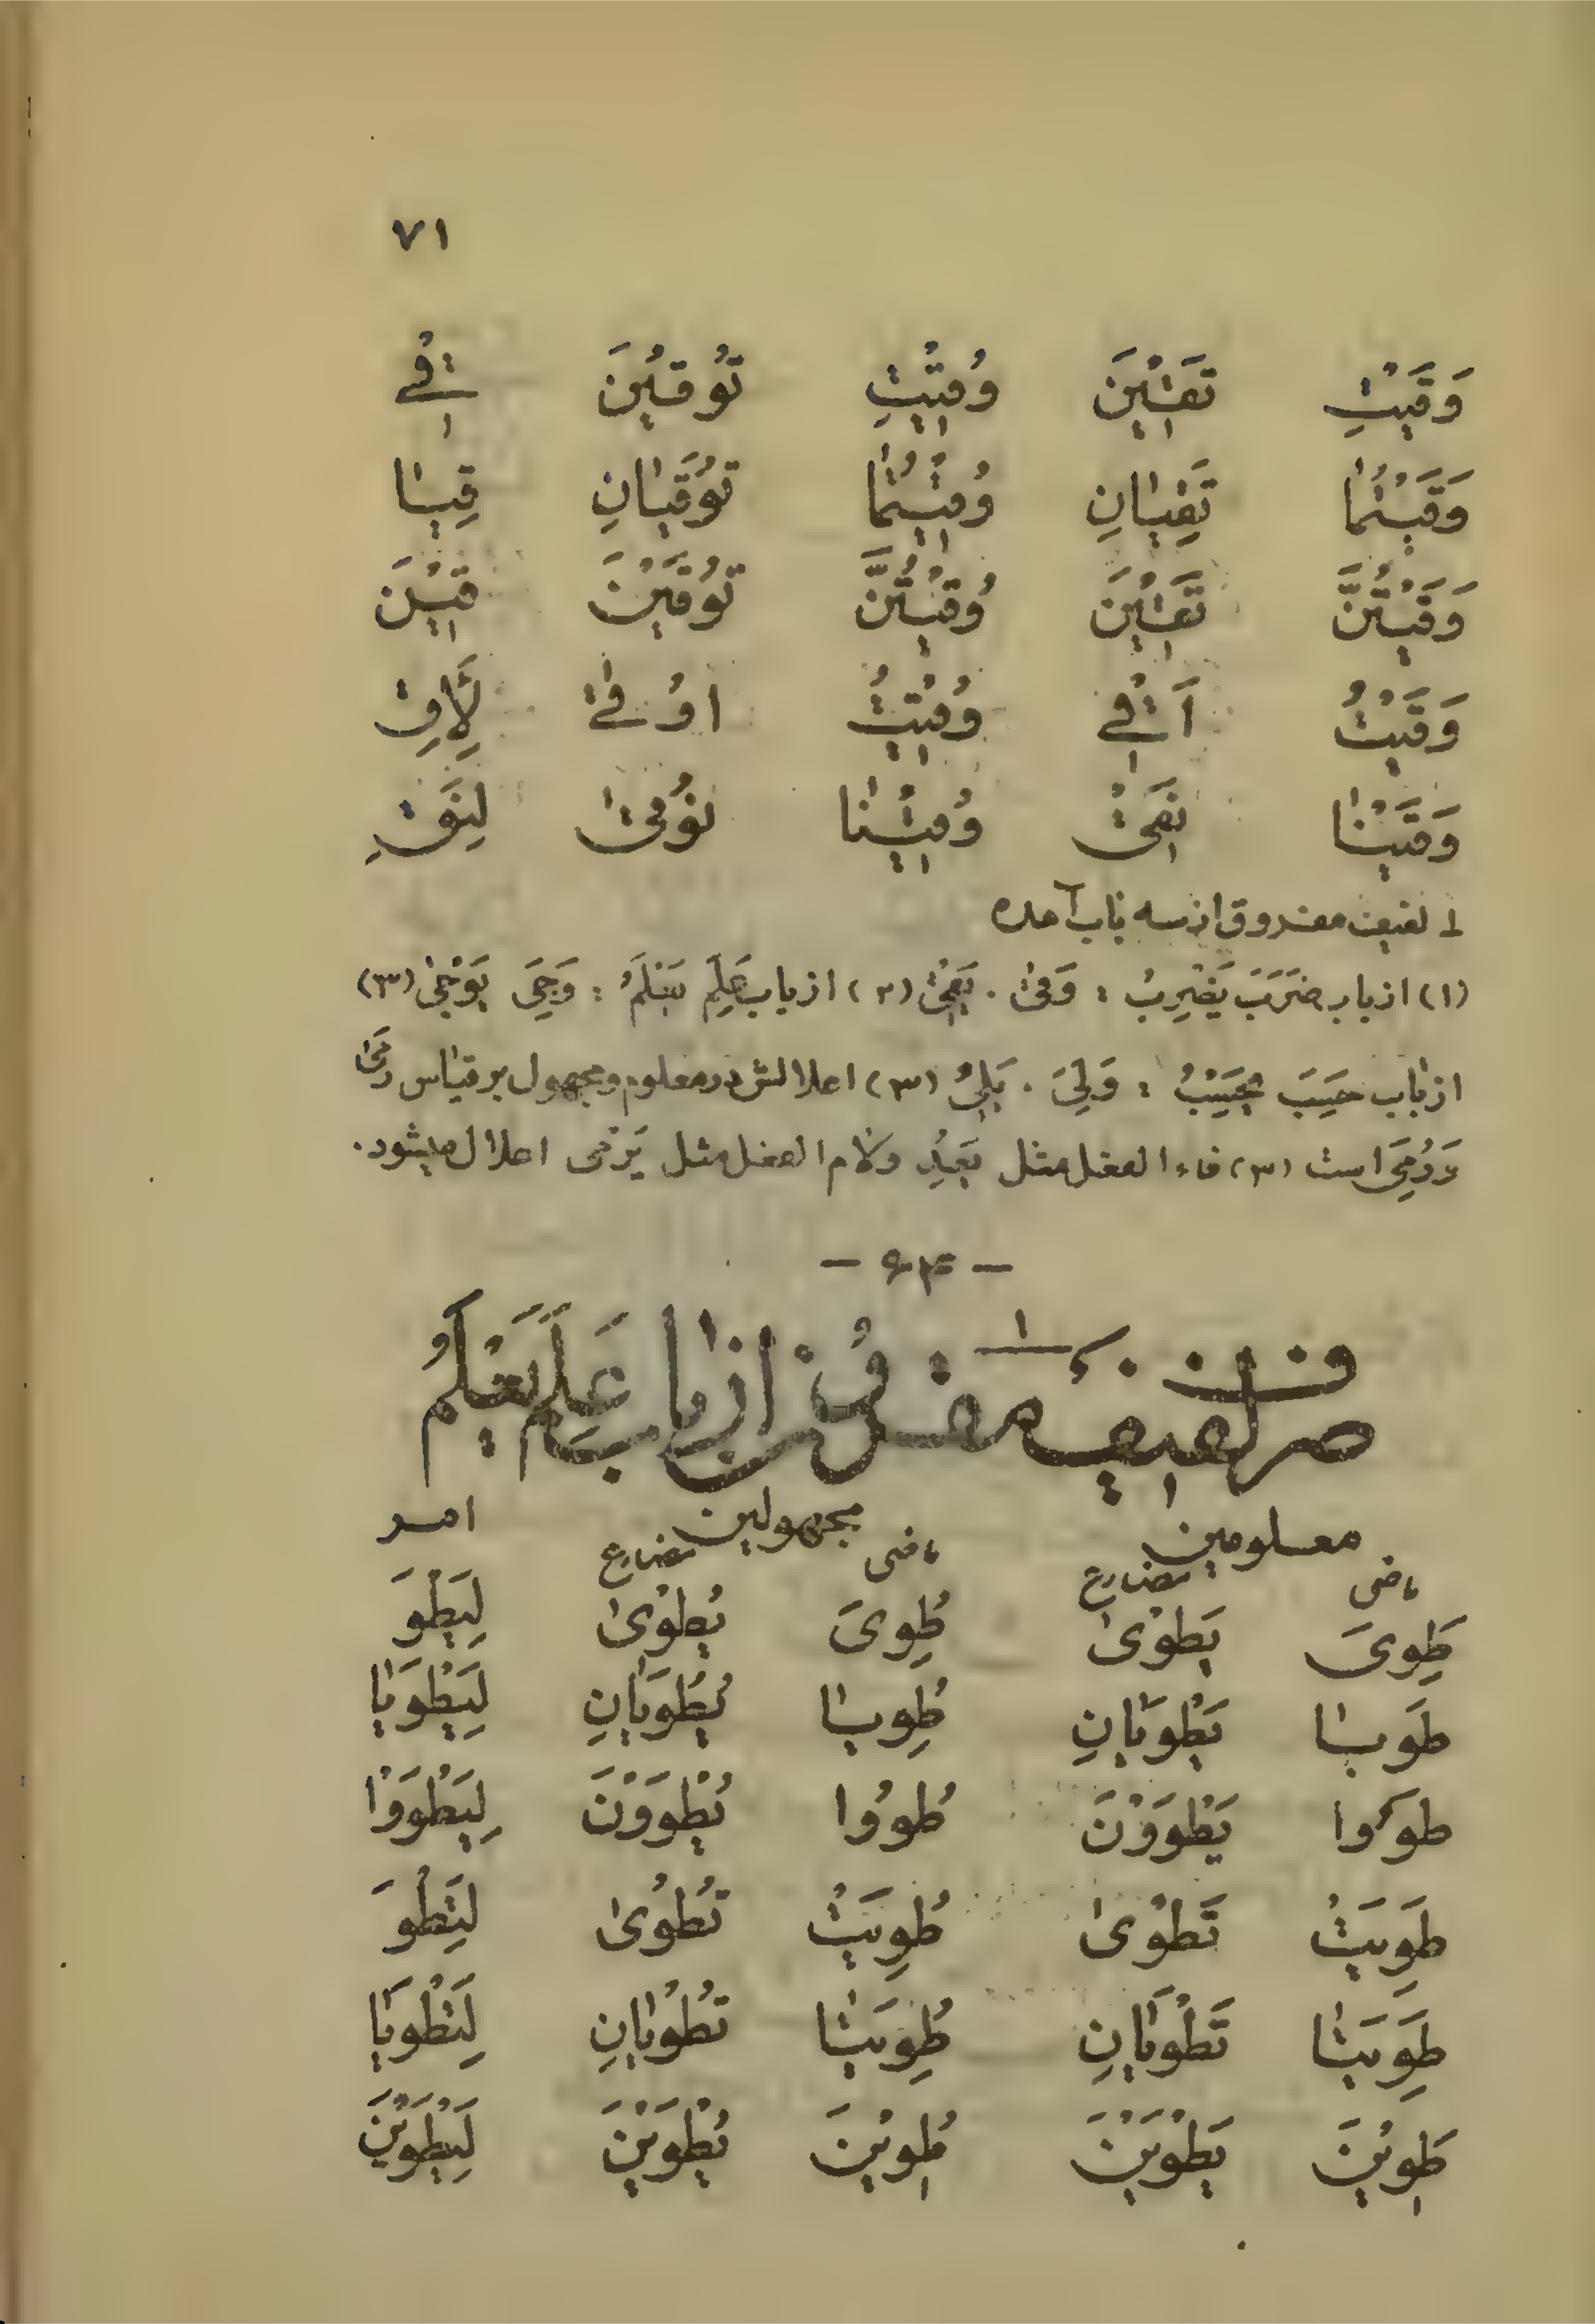 ۷۱
وَقَيْتِ تَقِيْنَ وُقِيْتِ تُوقَيْنَ قِيْ
وَقَيْتُمَا تَقِيَانِ وُقِيْتُمَا تُوْقَيَانِ قِيَا
وَقَيْتُنَّ تَقِيْنَ وُقِيْتُنَّ تُوْقَيْنَ قِيْنَ
وَقَيْتُ اَقِيْ وُقِيْتُ اُوْقىٰ لِاَقِ
وَقَيْنَا نَقِيْ وُقِيْنَا نُوْقىٰ لِنَقِ
۱ لفیف مفروق از سه باب آمده
(۱) از باب ضَرَبَ يَضْرِبُ : وَقىٰ . يَقِيْ (۲) از باب عَلِمَ يَعْلَمُ : وَجِىَ يَوْجىٰ (۳)
از باب حَسِبَ يَحْسِبُ : وَلِىَ . يَلِىُ (۳) اعلالش در معلوم و مجهول بر قیاس رَمىٰ
وَرُمِىَ است (۳) فاء الفعل مثل يَعِدُ ولام الفعل مثل يَرْمى اعلال میشود.
صرف لفیف مقرون از باب عَلِمَ يَعْلَمُ
معلومین مجهولین امر
ماضی مضارع ماضی مضارع
طَوِىَ يَطْوىٰ طُوِىَ يُطْوىٰ لِيَطْوَ
طَوِيَا يَطْوَيَانِ طُوِيَا يُطْوَيَانِ لِيَطْوَيَا
طَوُوا يَطْوَوْنَ طُوُوا يُطْوَوْنَ لِيَطْوَوْا
طَوِيَتْ تَطْوىٰ طُوِيَتْ تُطْوىٰ لِتَطْوَ
طَوِيَتَا تَطْوَيَانِ طُوِيَتَا تُطْوَيَانِ لِتَطْوَيَا
طَوِيْنَ يَطْوَيْنَ طُوِيْنَ يُطْوَيْنَ لِيَطْوَيْنَ